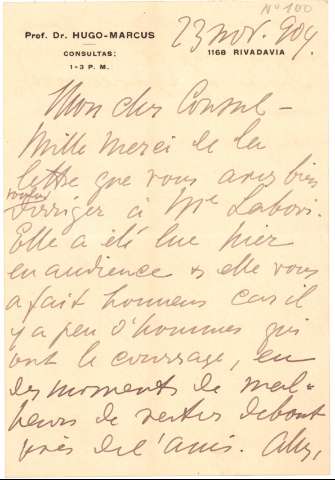 Nº 100
Prof. Dr. HUGO-MARCUS
CONSULTAS:
1-3 P. M.
23 nov. 904
1168 RIVADAVIA
Mon cher Consul —
Mille merci de la
lettre que vous avez bien
voulu
dirriger à Me Labori.
Elle a été lue hier
en audience & elle vous
a fait honneur car il
y a peu d'hommes qui
ont le courrage, en
des moments de mal-
heurs de rester debout
près de l'ami.